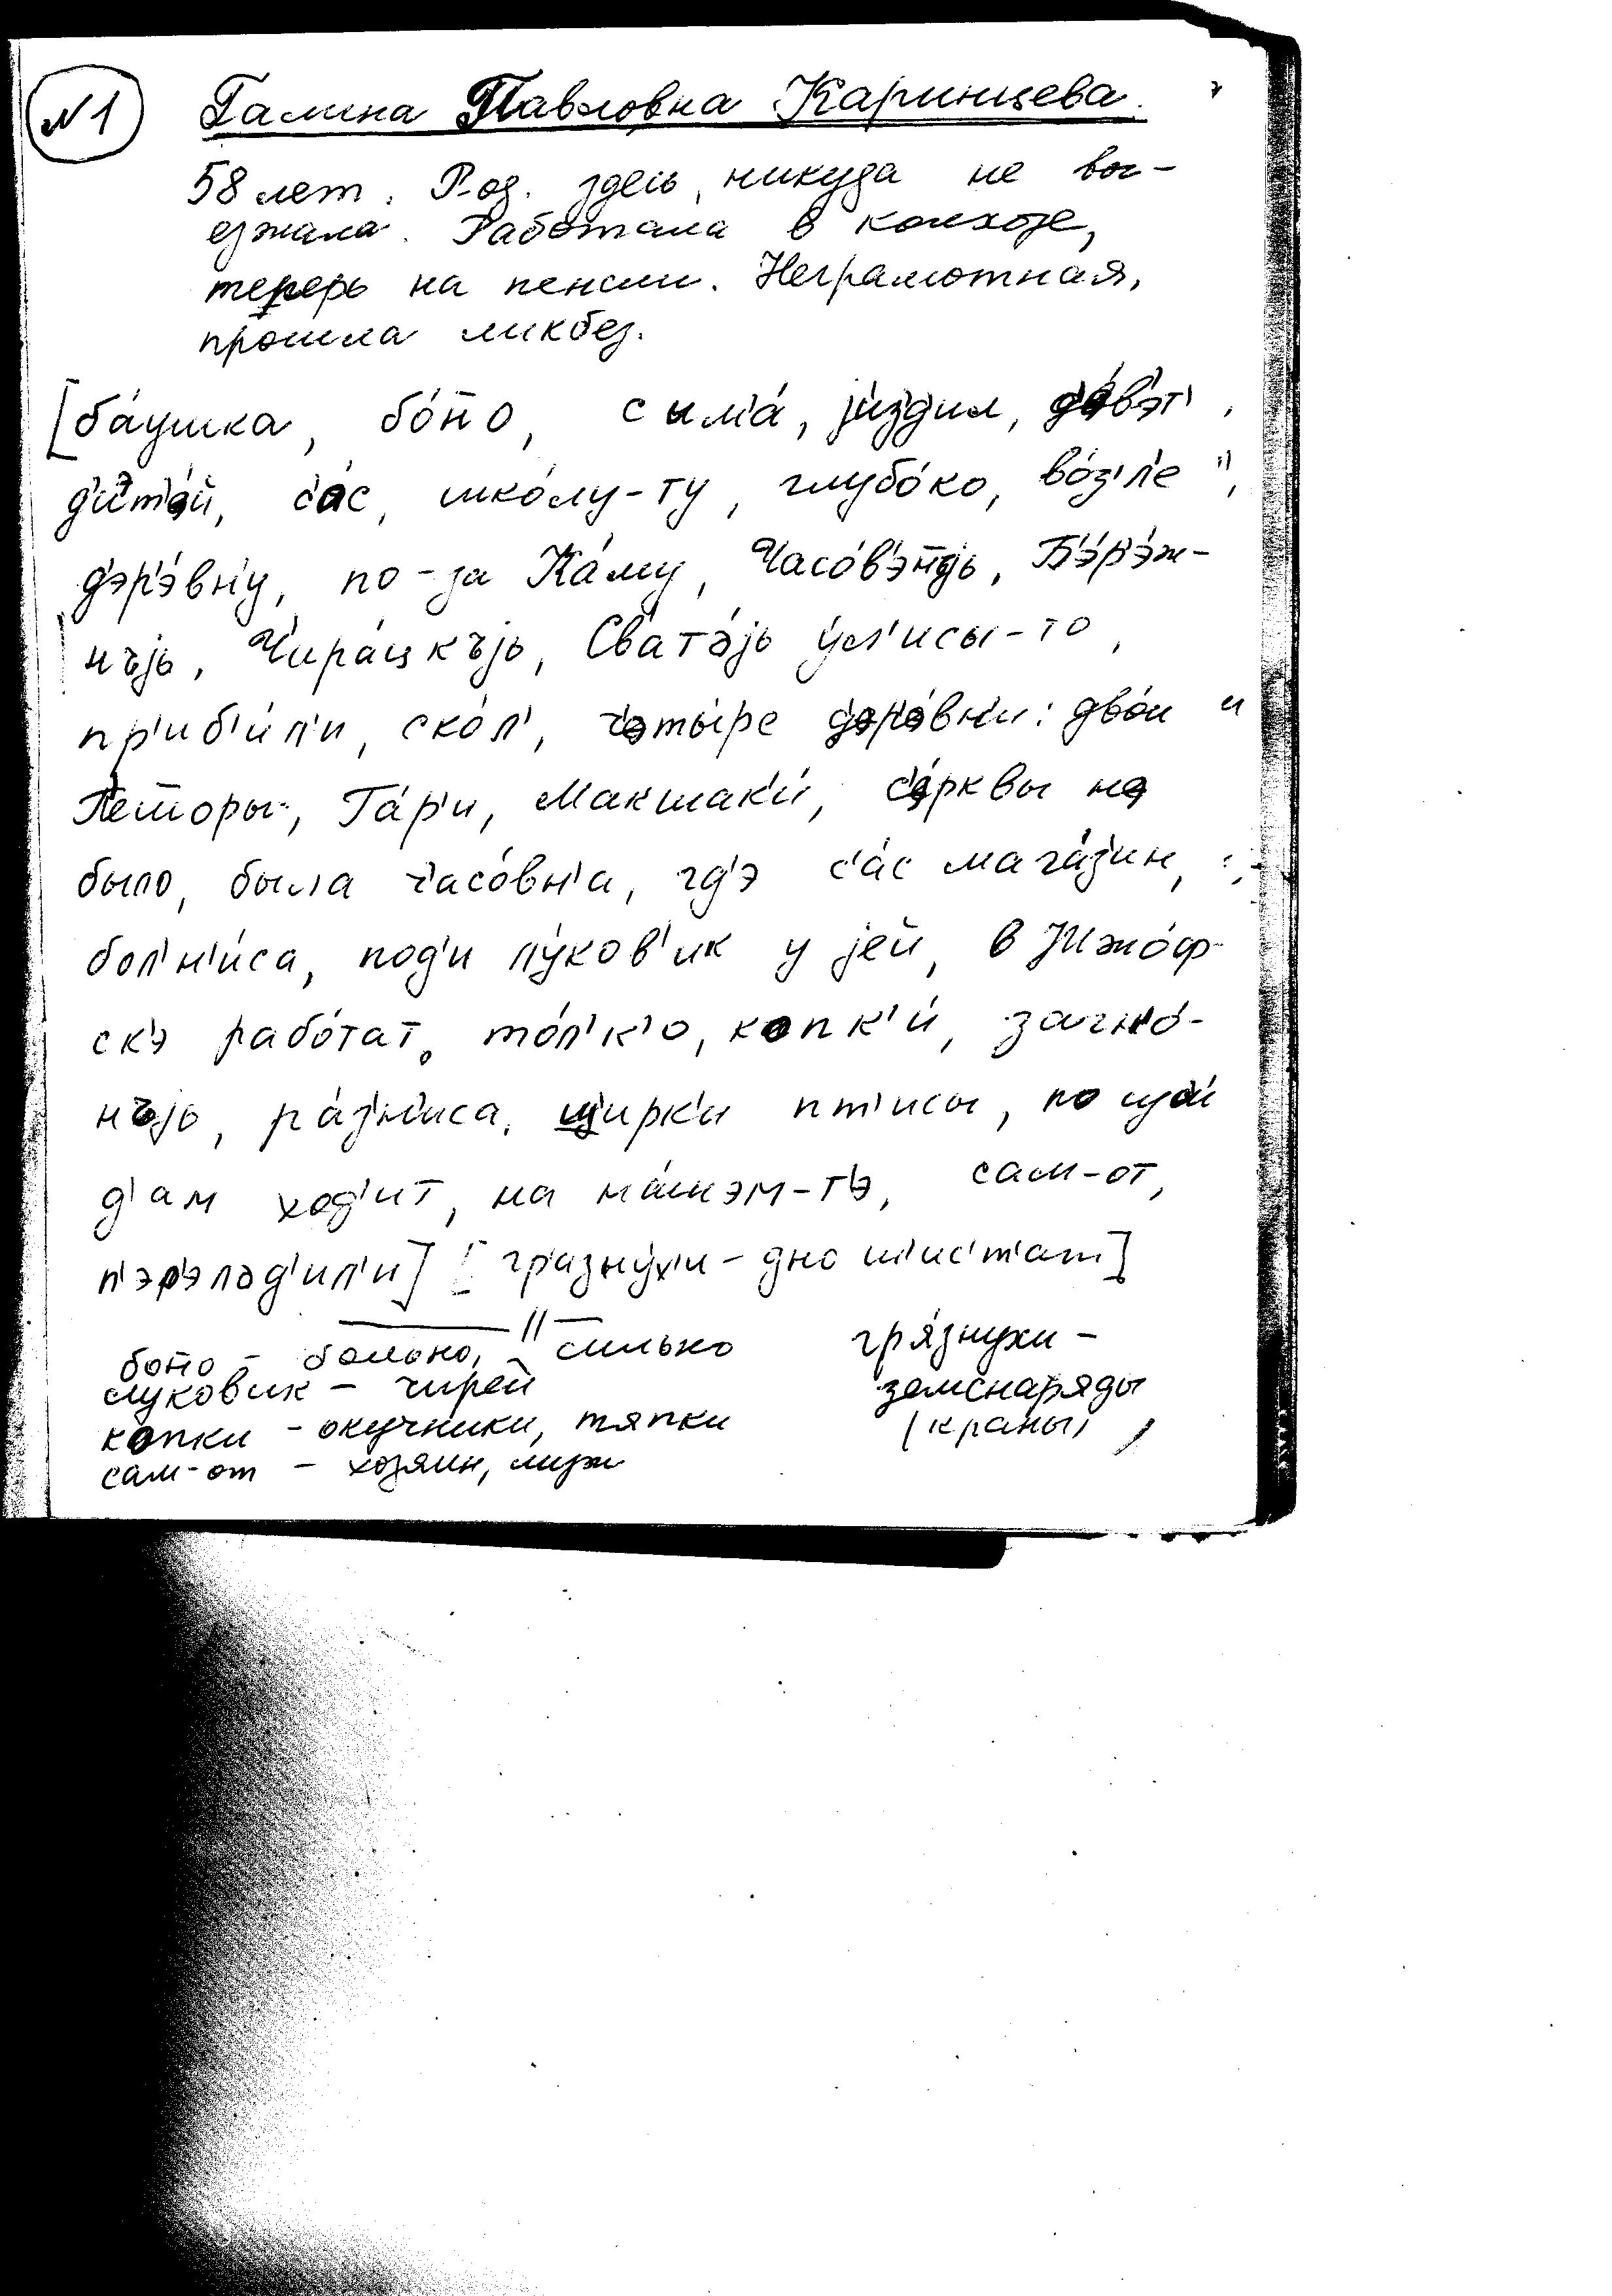 №1 Галина Павловна Каринцева.
58 лет. Р-од. здесь, никуда не вы-
езжала. Работала в колхозе,
теперь на пенсии. Неграмотная,
прошла ликбез.
[ба́ушка, бо́йо, с ыма́, jи́здил,
д'ит'э́й, с'ас, шко́лу-ту, глубо́ко, во́з'л'е
д'эр'э́вн'у, по-за Ка́му, Б'э́р'эж-
нъjь, Чира́цкъjь, Св'ата́jь у́л'исы-то,
пр'иб'и́л'и, ско́л', ч'эты́ре д'эр'э́вн'и: дво́и и
Га́р'и, Макшак'и́, с'э́рквы нэ
было, была ч'асо́вн'а, гд'э с'а́с магаз'и́н,
бол'н'и́са, под'и лу́ков'ик у jей, в Ижо́ф-
ск'э рабо́тат, то́л'к'о, копк'и́,
ра́з'н'иса, цирк'и пт'исы,
д'ам ход'ит, на на́шэм-т'э, сам-от,
п'эр'элад'ил'и] [гр'азну́х'и - дно ш'ис'т'ат]
бойо - больно, сильно
луковик - чирей
копки - окучники, тяпки
сам-от - хозяин, муж
гря́знухи -
земснаряды
(краны)